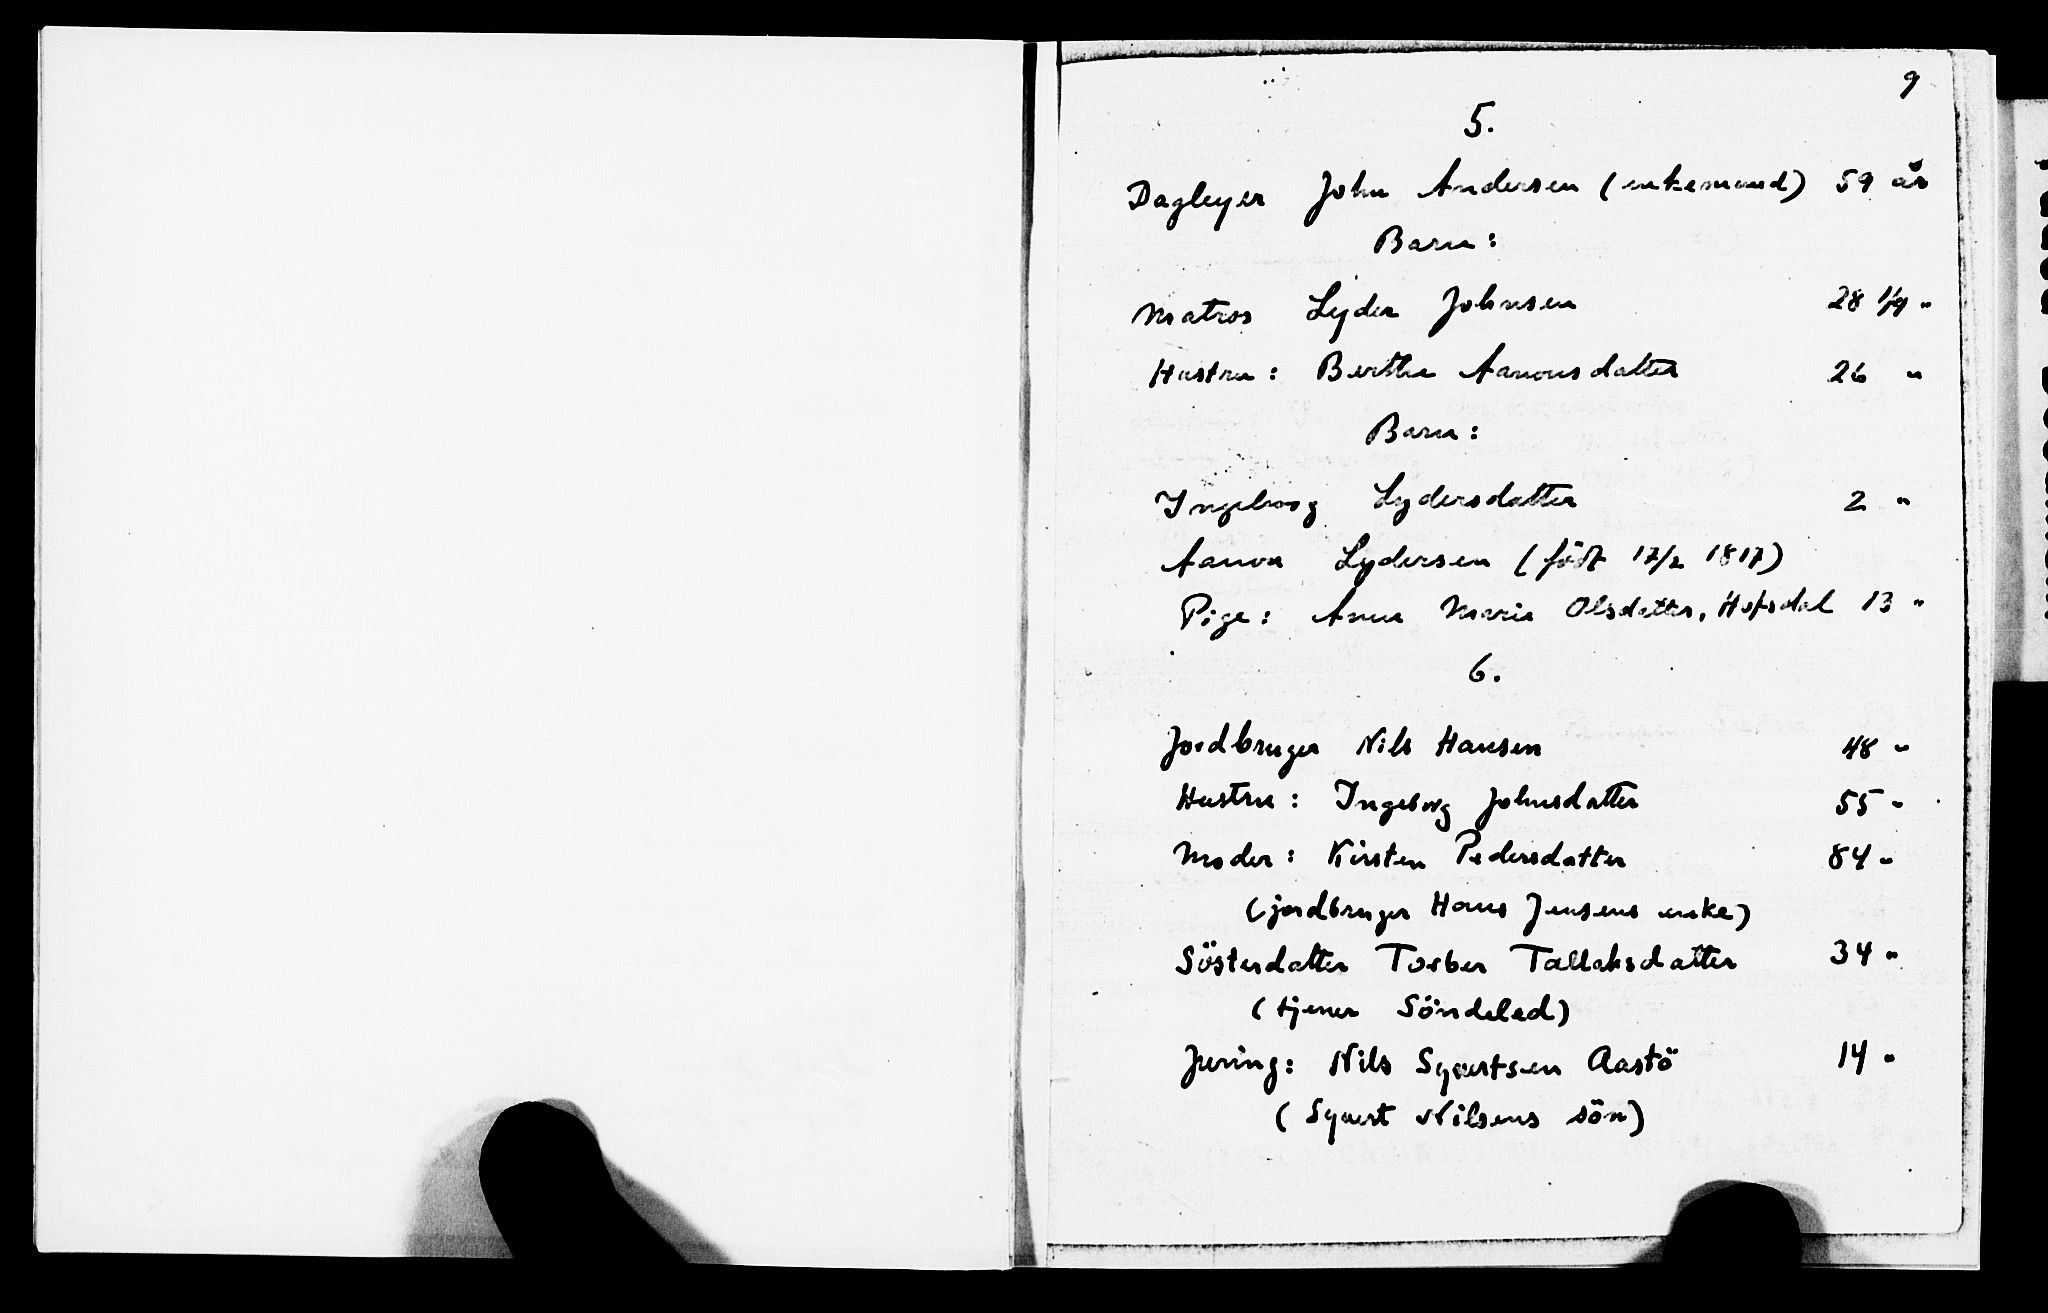 9
5.
Dagleyer John Andersen (enkemand) 59 år
Barn:
Matros Lyder Johnsen 28 1/9 "
Hustru: Berthe Aanonsdatter 26 "
Barn:
Ingeborg Lydersdatter 2 "
Aanon Lydersen (född 17/2 1817)
Pige: Anna Maria Olsdatter, Hofsdal 13 "
6.
Jordbruger Nils Hansen 48 "
Hustru: Ingeborg Johnsdatter 55 "
Moder: Kirsten Pedersdatter 84 "
(jordbruger Hans Jensens enke)
Sösterdatter Torber Tallaksdatter 34 "
(tjener Söndeled)
Jnring: Nils Syvertsen Aastö 14 "
(Syvert Nilsens sön)